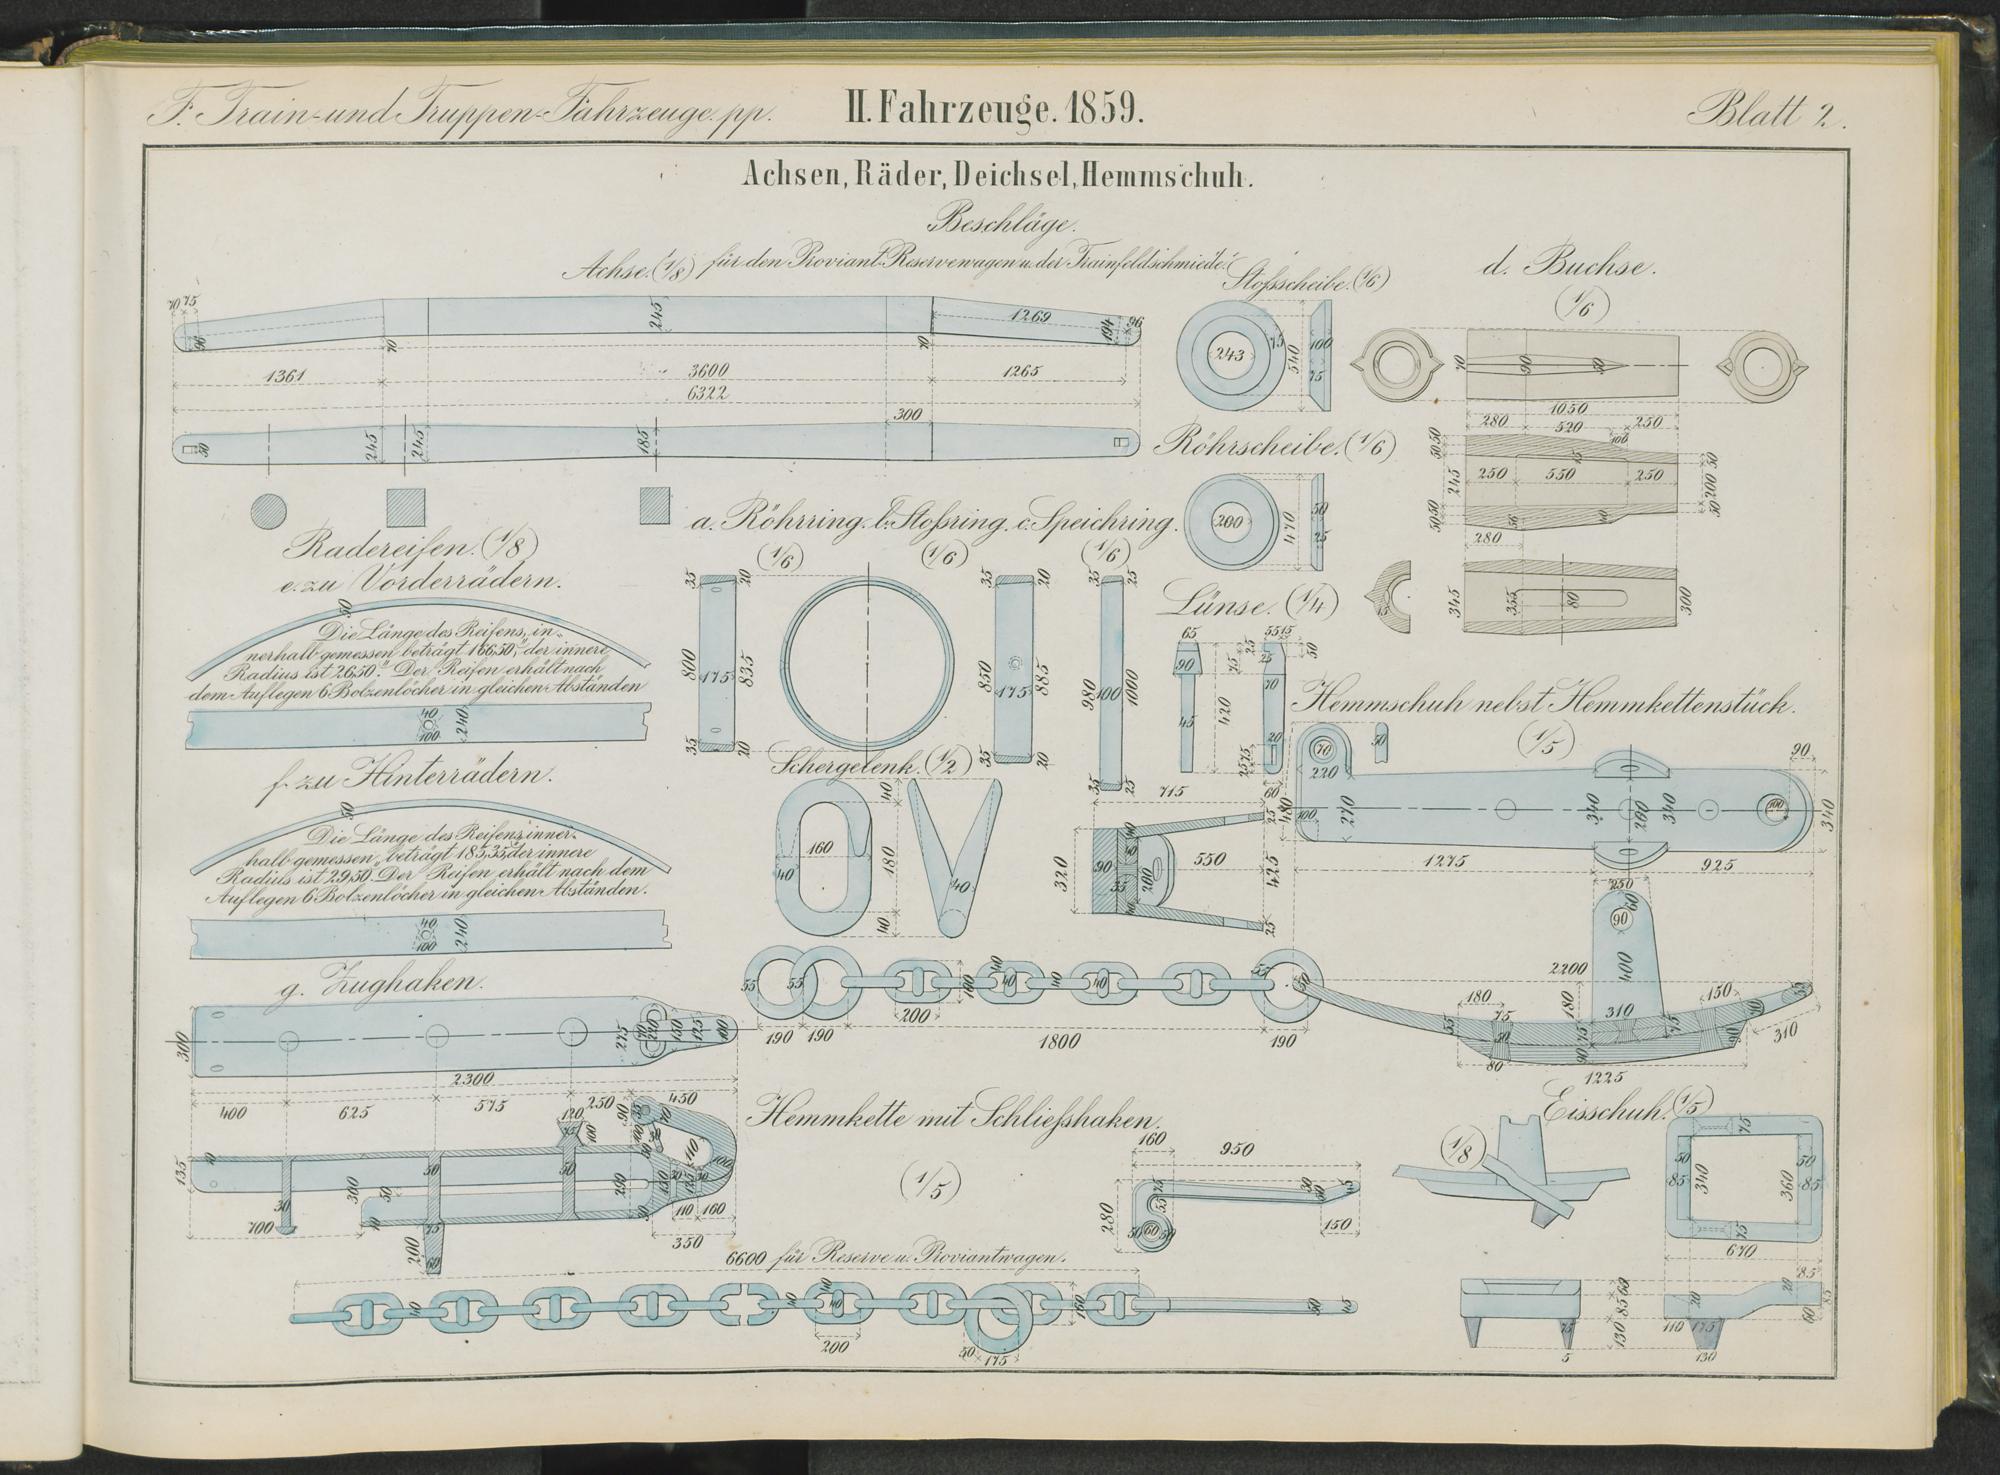 F. Train- und Truppen-Fahrzeuge. pp.
II. Fahrzeuge. 1859.
Blatt 2.
Achsen, Räder, Deichsel, Hemmschuh.
Beschläge.
Achse. (1/8) für den Proviant Reservewagen u. der Trainfeldschmiede.
70 75
96
70
245
70
1269
194
96
1361
3600
1265
6322
300
50
245
245
185
Stofsscheibe. (1/6)
243
75
540
100
75
Röhrscheibe. (1/6)
200
470
50
25
d. Buchse.
(1/6)
70
90
50
1050
280
520
250
100
50 50
245
50 50
250
550
15
250
50
200
50
280
345
355
80
300
15
Radereifen. (1/8)
e. zu Vorderrädern.
50
Die Länge des Reifens, in-
nerhalb gemessen beträgt 166,50," der innere
Radius ist 26,50." Der Reifen erhält nach
dem Auflegen 6 Bolzenlöcher in gleichen Abständen
40
100
240
f. zu Hinterrädern.
50
Die Länge des Reifens inner-
halb gemessen, beträgt 185,35," der innere
Radius ist 29,50." Der Reifen erhält nach dem
Auflegen 6 Bolzenlöcher in gleichen Abständen.
40
100
240
a. Röhrring. b. Stofsring. c. Speichring.
(1/6)
(1/6)
(1/6)
35
20
800
175
835
35
20
35
20
850
175
885
35
20
35
25
980
100
1000
35
25
Lünse. (1/4)
65
90
45
420
55 15
25
25
50
75
70
20
25 75
60
Schergelenk. (1/2)
160
40
40
180
40
40
Hemmschuh nebst Hemmkettenstück.
(1/5)
70
220
50
90
480
100
270
340
260
340
100
340
1275
925
250
715
25
320
90
35
200
550
425
25
60
90
400
2200
180
180
75
310
150
55
50
75
75
90
90
55
310
80
1225
55
55
190
190
160
40
40
40
40
200
1800
55
190
g. Zughaken.
300
275
150
125
100
2300
400
625
575
250
450
120
75
100
90
135
50
50
30
700
360
50
290
110
160
350
200
75
60
Hemmkette mit Schliefshaken.
(1/5)
160
950
280
75
55
50 60 50
30
50
45
150
6600 für Reserve u. Proviantwagen.
40
40
40
40
200
160
50
175
50
45
Eisschuh. (1/5)
(1/8)
75
50
85
340
360
50
85
75
670
60
85
130
75
5
85
20
20
85
60
110
175
130